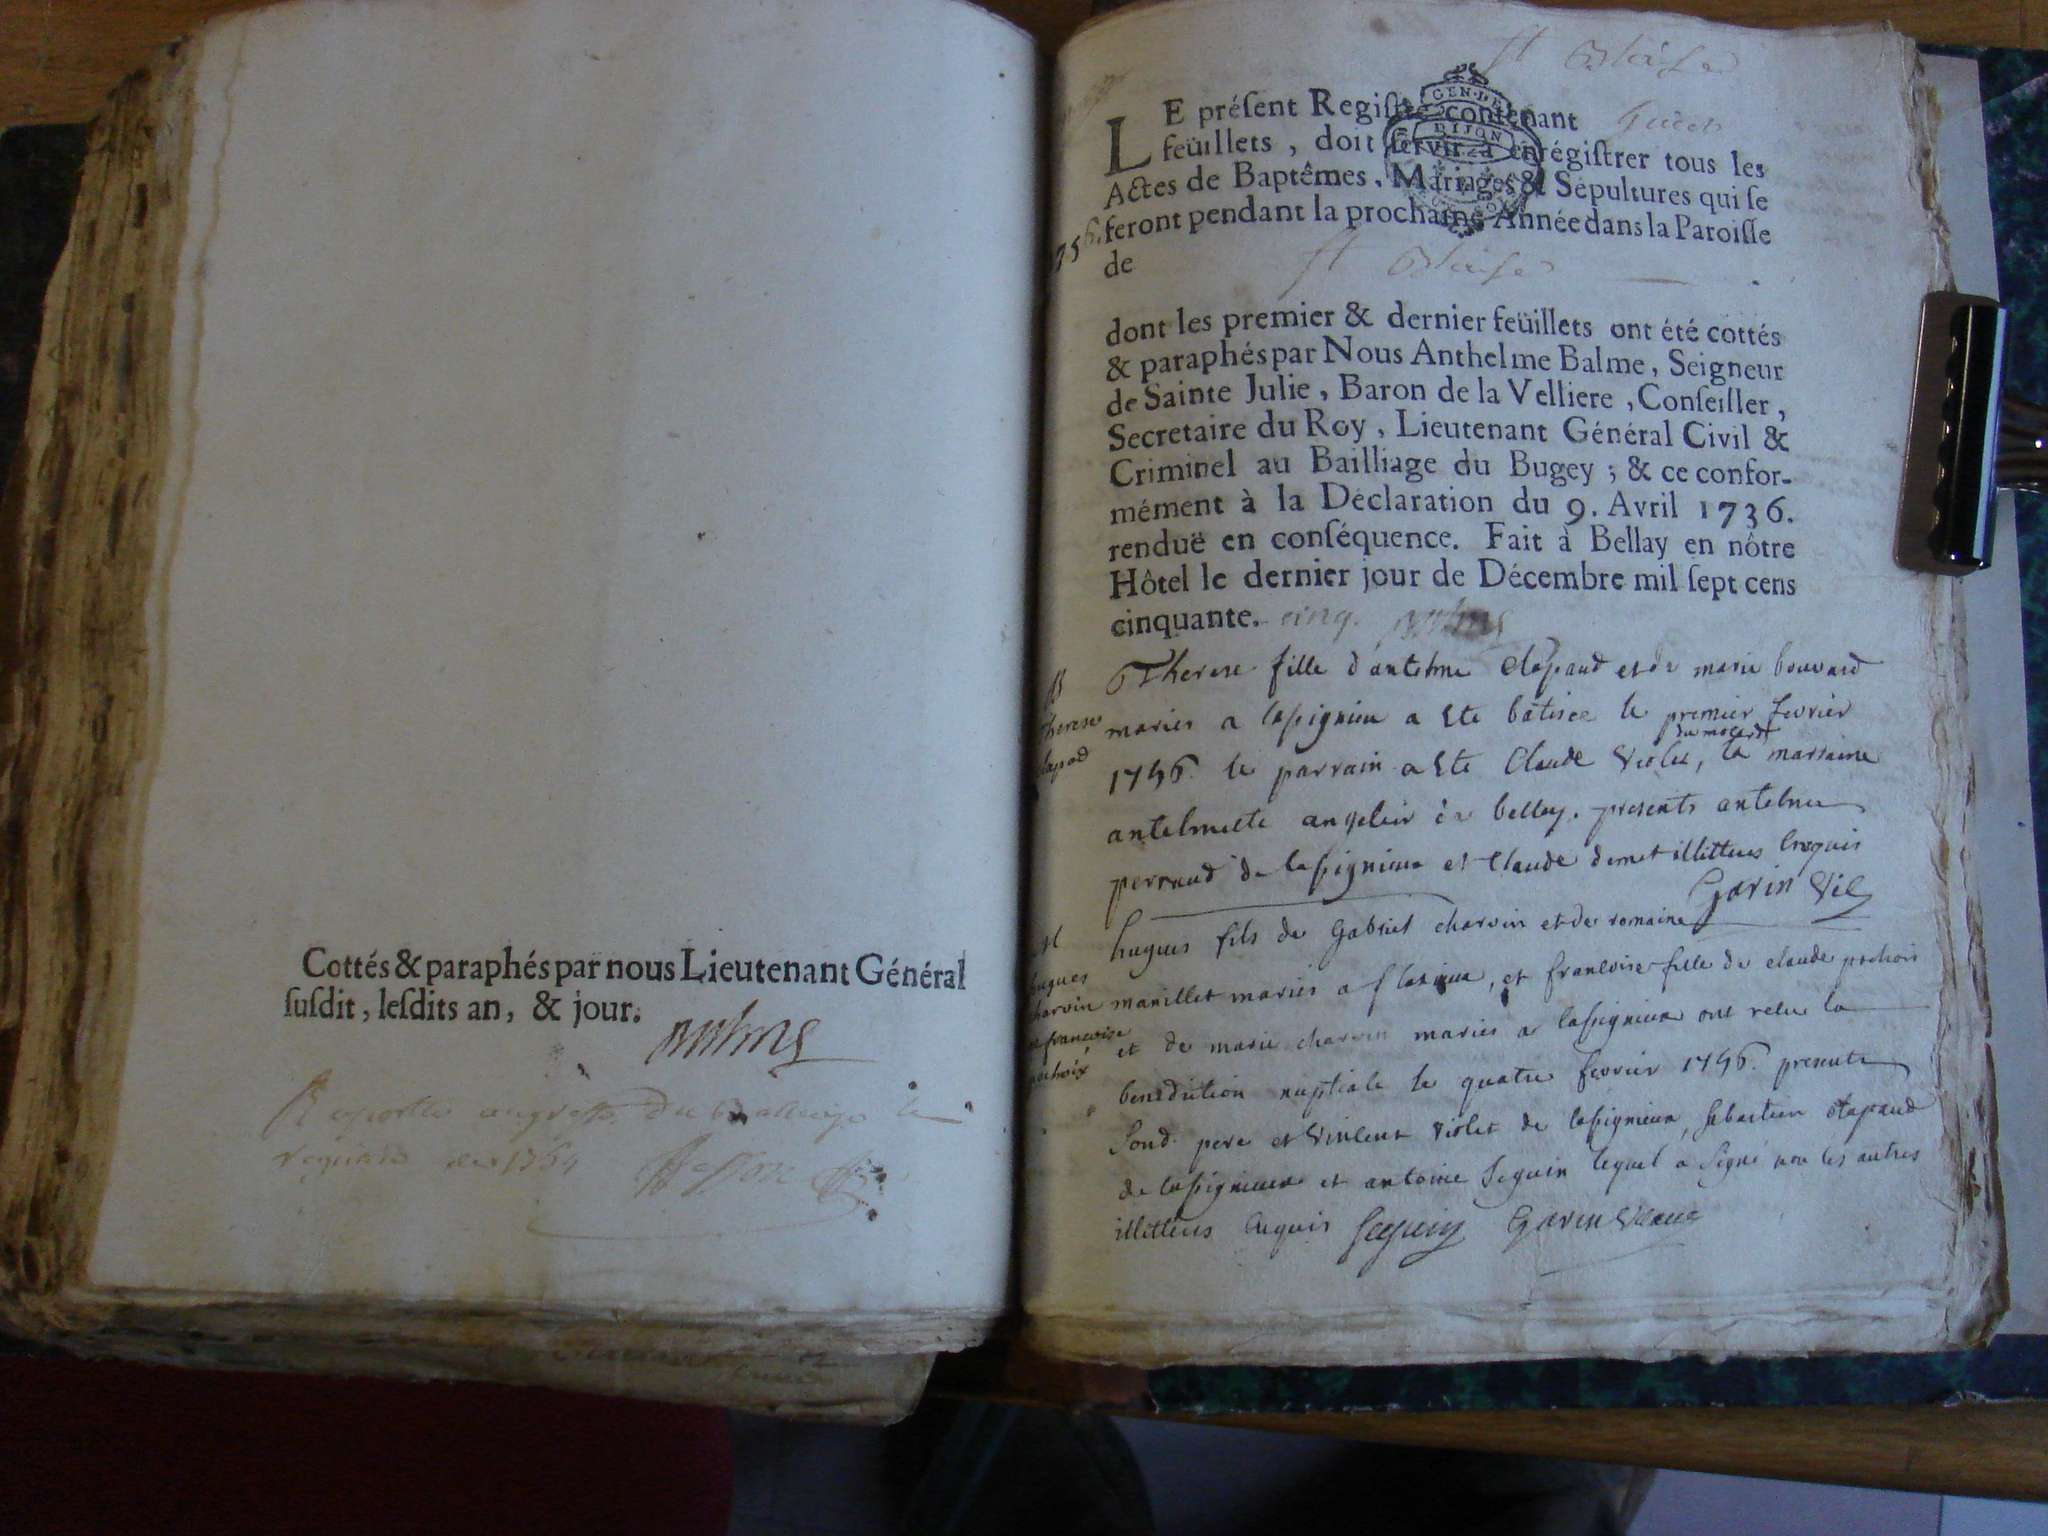 Cottés & paraphés par nous Lieutenant Général
ſuſdit, leſdits an, & jour.
du le
de 1754
St Blaiſe
GEN. DE
DIJON
LE préſent Regiſtre contenant
feüillets, doit ſervir à enrégiſtrer tous les
Actes de Baptêmes, Mariages & Sépultures qui ſe
feront pendant la prochaine Année dans la Paroiſſe
de St Blaiſe
dont les premier & dernier feüillets ont été cottés
& paraphés par Nous Anthelme Balme, Seigneur
de Sainte Julie, Baron de la Velliere, Conſeiller,
Secretaire du Roy, Lieutenant Général Civil &
Criminel au Bailliage du Bugey ; & ce confor-
mément à la Déclaration du 9. Avril 1736.
renduë en conſéquence. Fait à Bellay en nôtre
Hôtel le dernier jour de Décembre mil ſept cens
cinquante. cinq.
B
Therese
Therese fille d'antelme Clapaud et de marie bouvard
maries a laſignieu a ete batisee le premier fevrier
1756. le parrain a ete Claude Violet, la marraine
antelmette de belley. presents antelme
perraud de laſignieu et Claude illitteres Enquis
Garin Vic
M
hugues
charvin
francoise
pochoix
hugues fils de Gabriel charvin et de romaine
manillet maries a, et francoise fille de claude pochois
et de marie charvin maries a laſignieu ont recu la
benediction nuptiale le quatre fevrier 1756. presents
pere et Vincent Violet de laſignieu, sebastien clapaud
de laſignieu et antoine Seguin lequel a signé non les autres
illitteres Enquis Seguin Garin Vicaire